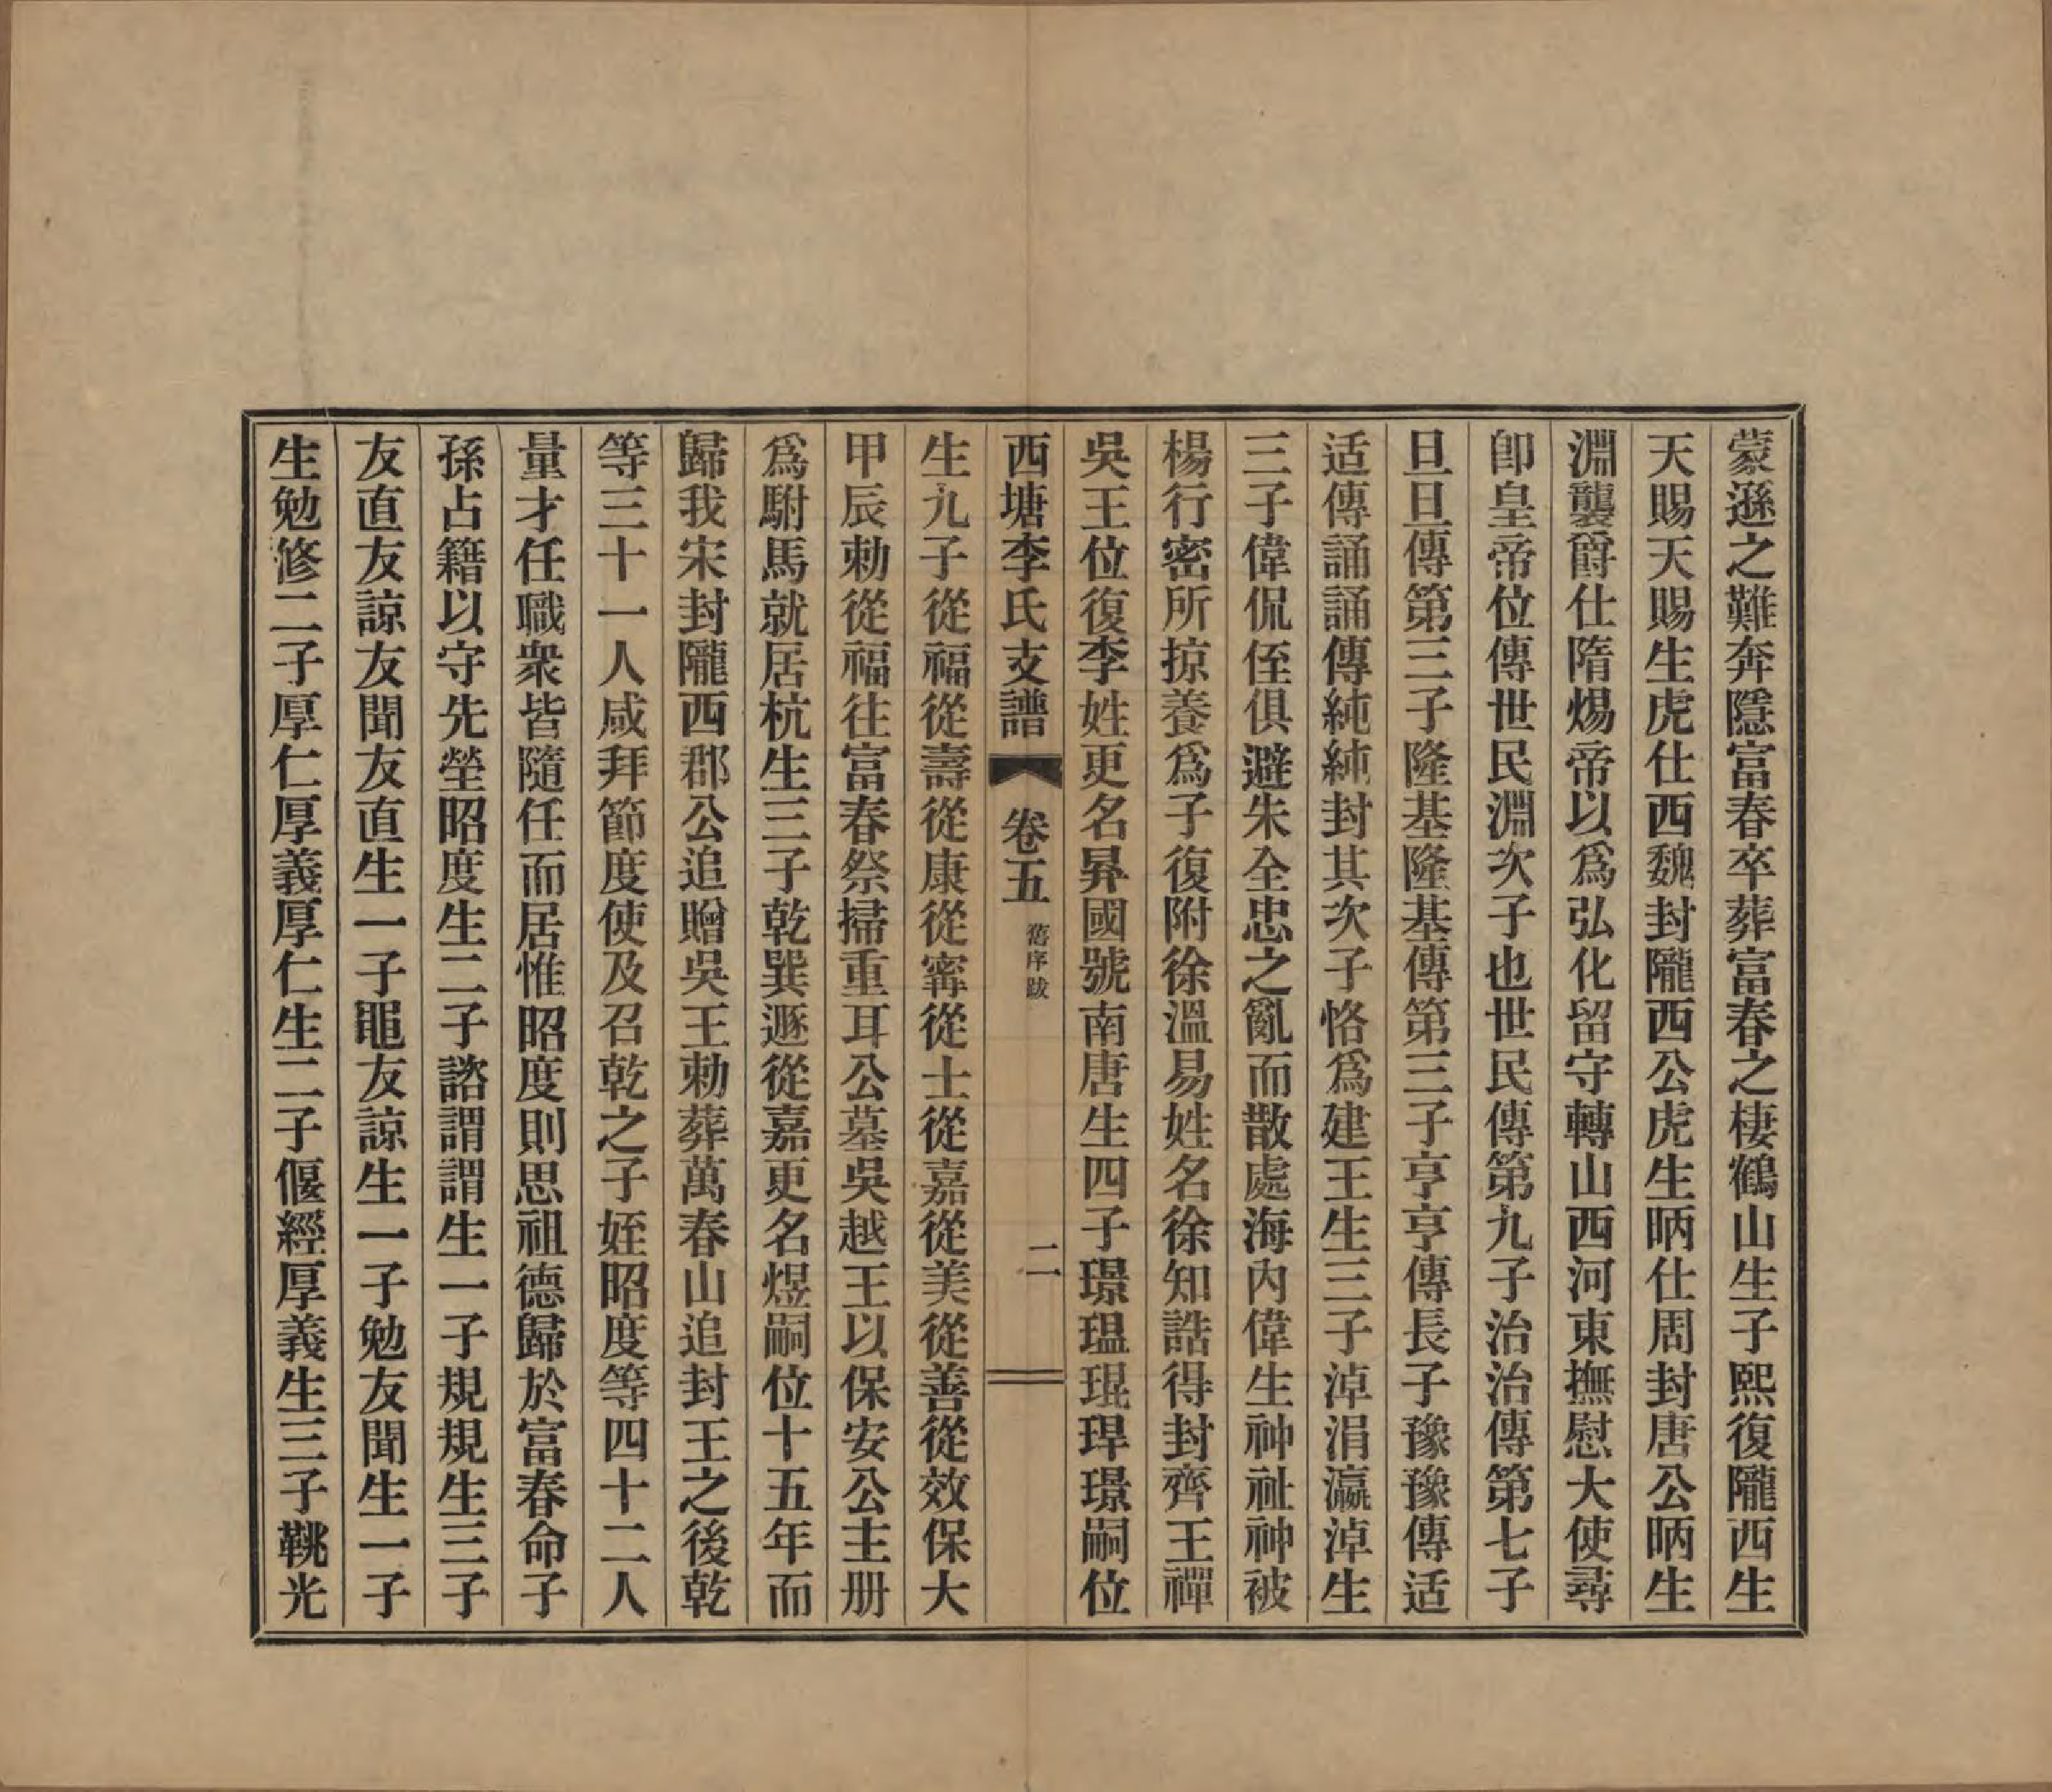 蒙遜之難奔隱富春卒葬富春之棲鶴山生子熙復隴西生
天賜天賜生虎仕西魏封隴西公虎生昞仕周封唐公昞生
淵襲爵仕隋煬帝以爲弘化留守轉山西河東撫慰大使尋
卽皇帝位傳世民淵次子也世民傳第九子治治傳第七子
旦旦傳第三子隆基隆基傳第三子亨亨傳長子豫豫傳适
适傳誦誦傳純純封其次子恪爲建王生三子淖涓瀛淖生
三子偉侃侄俱避朱全忠之亂而散處海內偉生祌祉祌被
楊行密所掠養爲子復附徐溫易姓名徐知誥得封齊王禪
吳王位復李姓更名昪國號南唐生四子璟瑥琨琾璟嗣位
西塘李氏支譜
卷五
舊序跋
二
生九子從福從壽從康從甯從士從嘉從美從善從效保大
甲辰勅從福往富春祭掃重耳公墓吳越王以保安公主册
爲駙馬就居杭生三子乾巽遯從嘉更名煜嗣位十五年而
歸我宋封隴西郡公追贈吳王勅葬萬春山追封王之後乾
等三十一人咸拜節度使及召乾之子姪昭度等四十二人
量才任職衆皆隨任而居惟昭度則思祖德歸於富春命子
孫占籍以守先塋昭度生二子諮謂謂生一子規規生三子
友直友諒友聞友直生一子黽友諒生一子勉友聞生一子
生勉修二子厚仁厚義厚仁生二子偃經厚義生三子鞉光